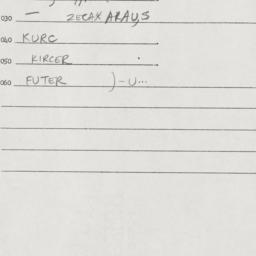 030 — ZECAX ARAUS
040 KURC
050 KIRCER
060 FUTER )-U...